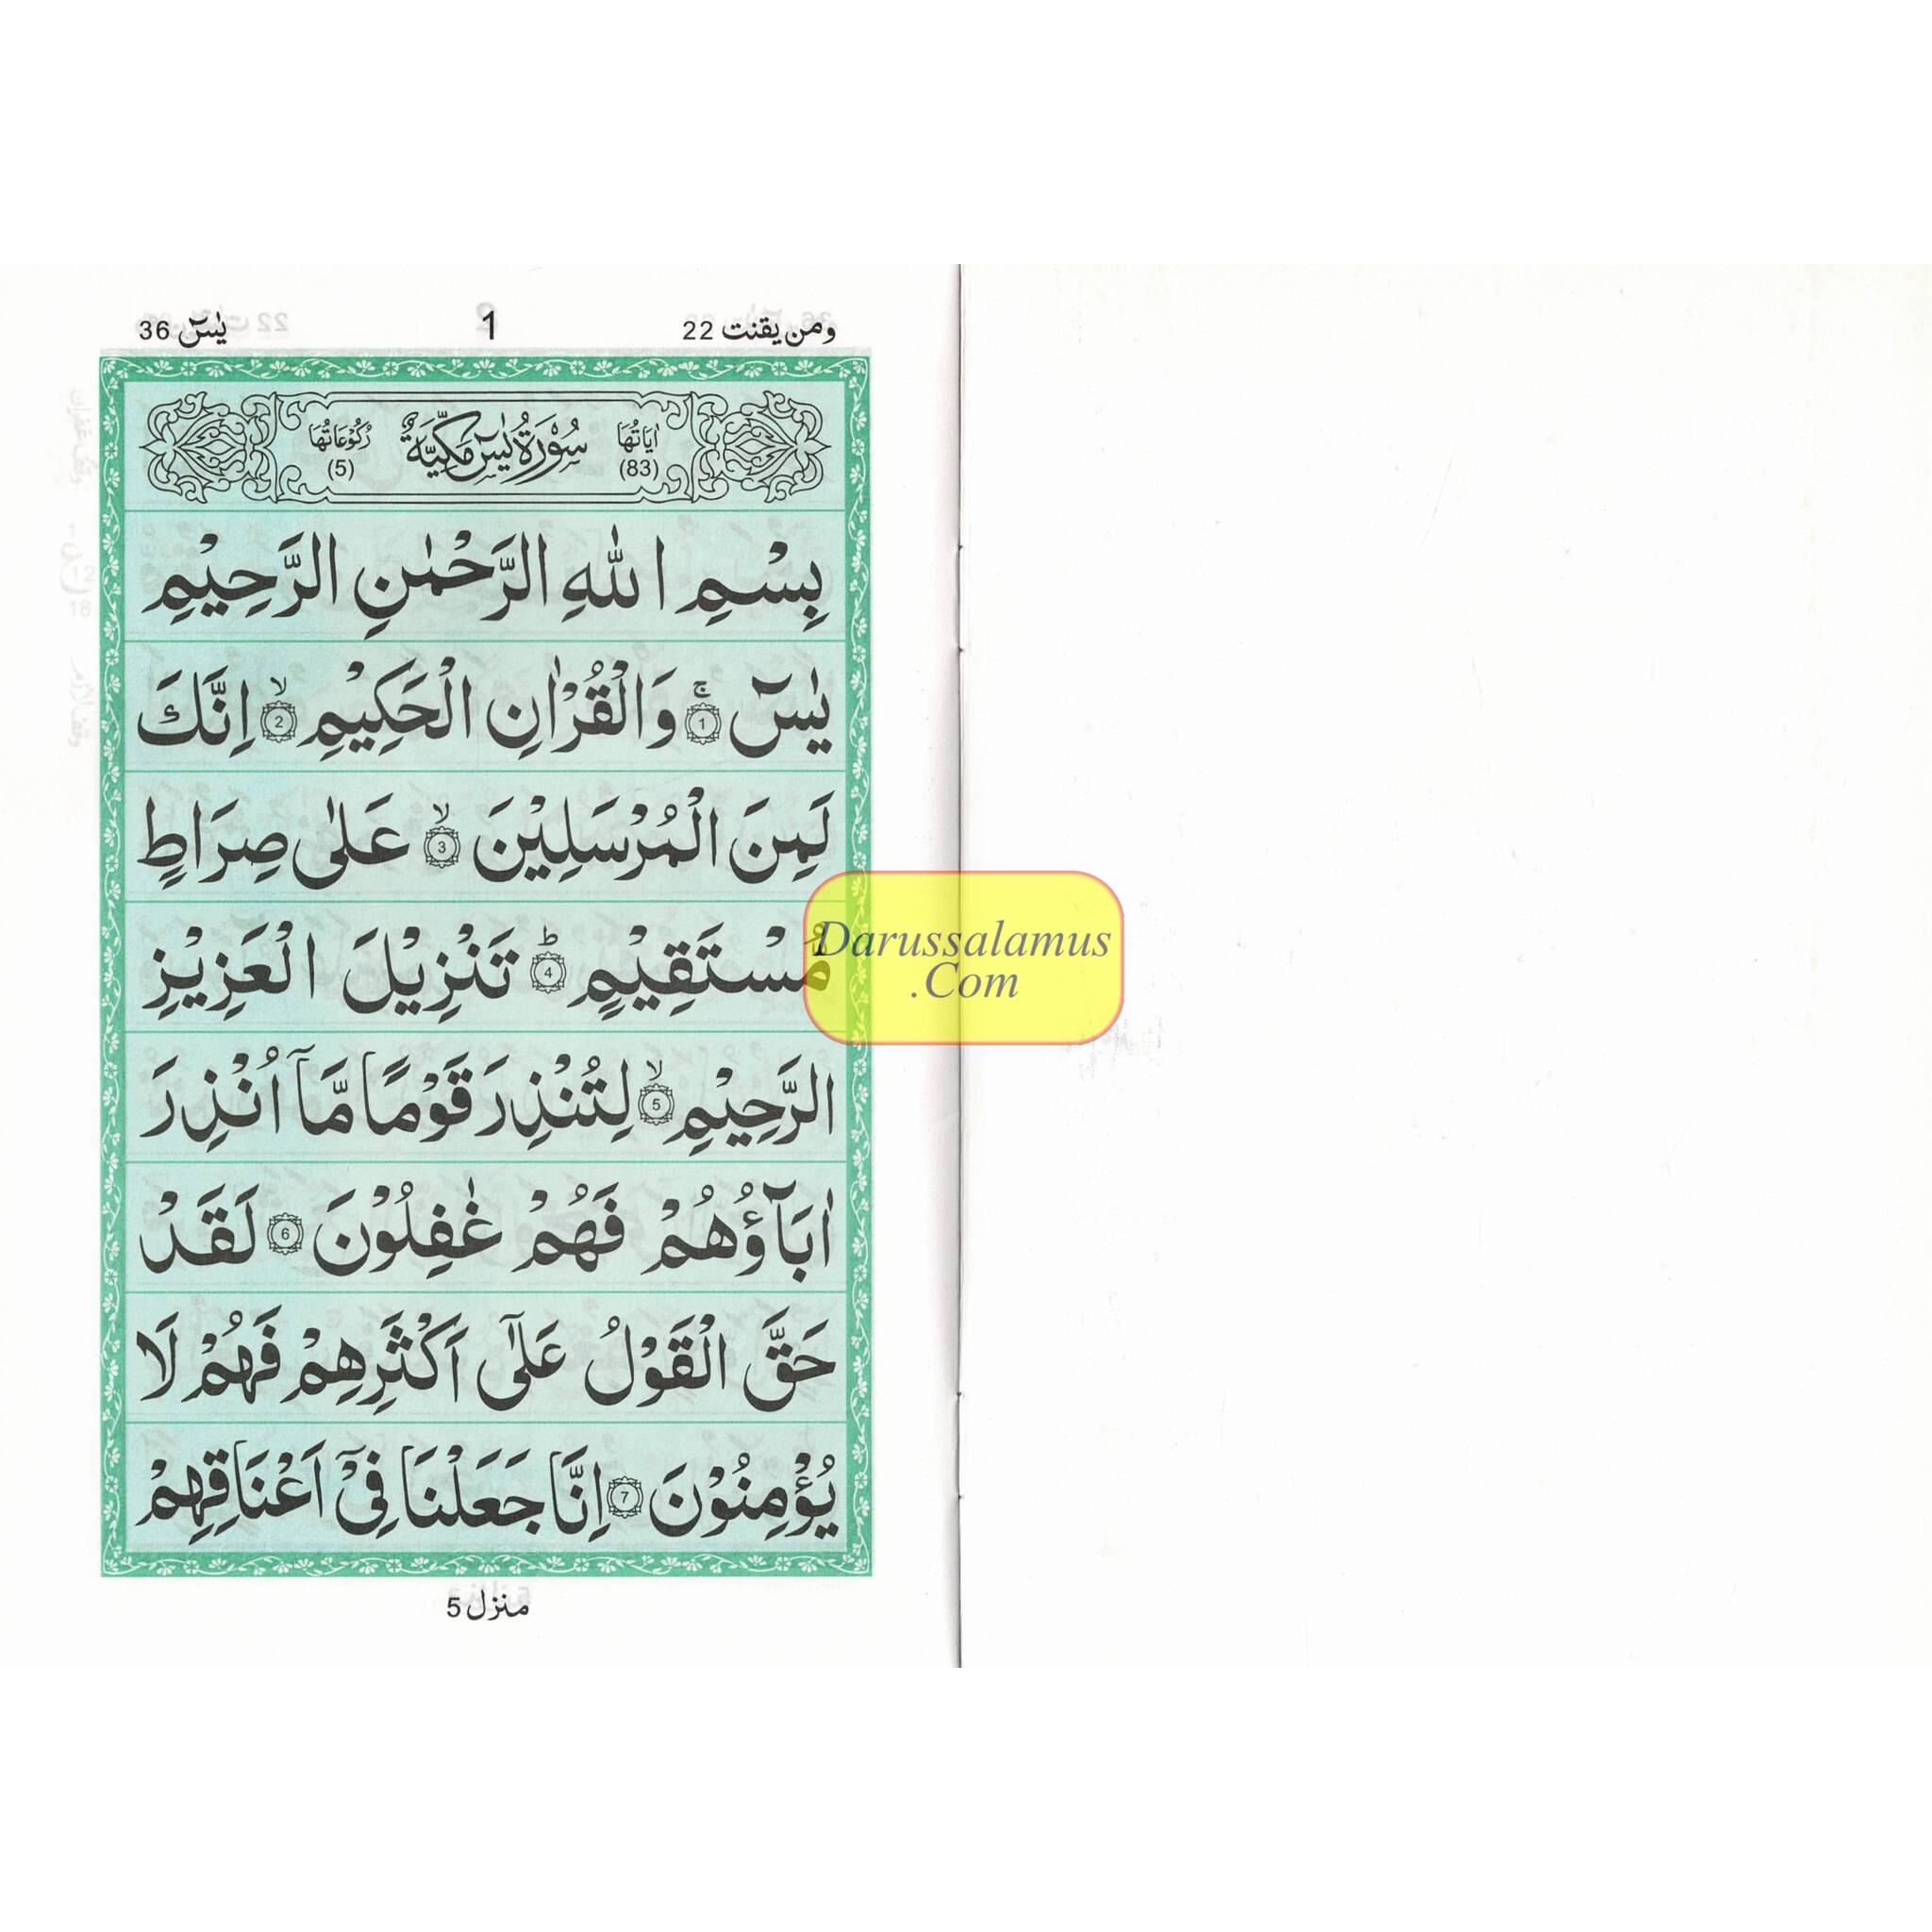 ومن يقنت 22
1
يٰسٓ 36
اٰيَاتُهَا (83)
سُوْرَةُ يٰسٓ مَكِّيَّةٌ
رُكُوْعَاتُهَا (5)
بِسْمِ اللّٰهِ الرَّحْمٰنِ الرَّحِيْمِ
يٰسٓ ۚ 1 وَالْقُرْاٰنِ الْحَكِيْمِ ۙ 2 اِنَّكَ
لَمِنَ الْمُرْسَلِيْنَ ۙ 3 عَلٰى صِرَاطٍ
مُّسْتَقِيْمٍ ؕ 4 تَنْزِيْلَ الْعَزِيْزِ
الرَّحِيْمِ ۙ 5 لِتُنْذِرَ قَوْمًا مَّاۤ اُنْذِرَ
اٰبَآؤُهُمْ فَهُمْ غٰفِلُوْنَ 6 لَقَدْ
حَقَّ الْقَوْلُ عَلٰۤى اَكْثَرِهِمْ فَهُمْ لَا
يُؤْمِنُوْنَ 7 اِنَّا جَعَلْنَا فِىْۤ اَعْنَاقِهِمْ
منزل 5
Darussalamus
.Com